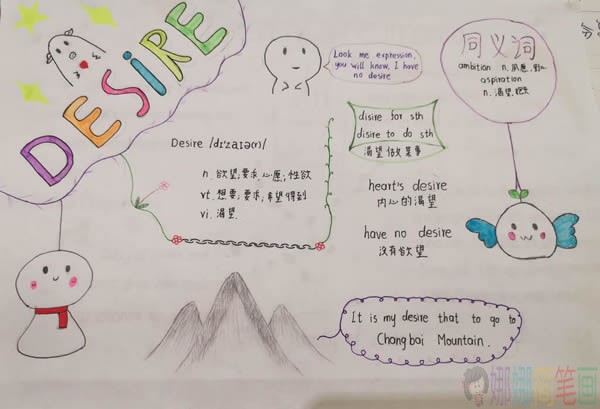 DESIRE
Look me expression,
you will know, I have
no desire
同义词
ambition n.夙愿,野心
aspiration
n.渴望,抱负
disire for sth
disire to do sth
渴望做某事
Desire /dɪ'zaɪə(r)/
n.欲望;要求,心愿;性欲
vt.想要;要求;希望得到
vi.渴望
heart's desire
内心的渴望
have no desire
没有欲望
It is my desire that to go to
Changbai Mountain.
娜娜
笔画